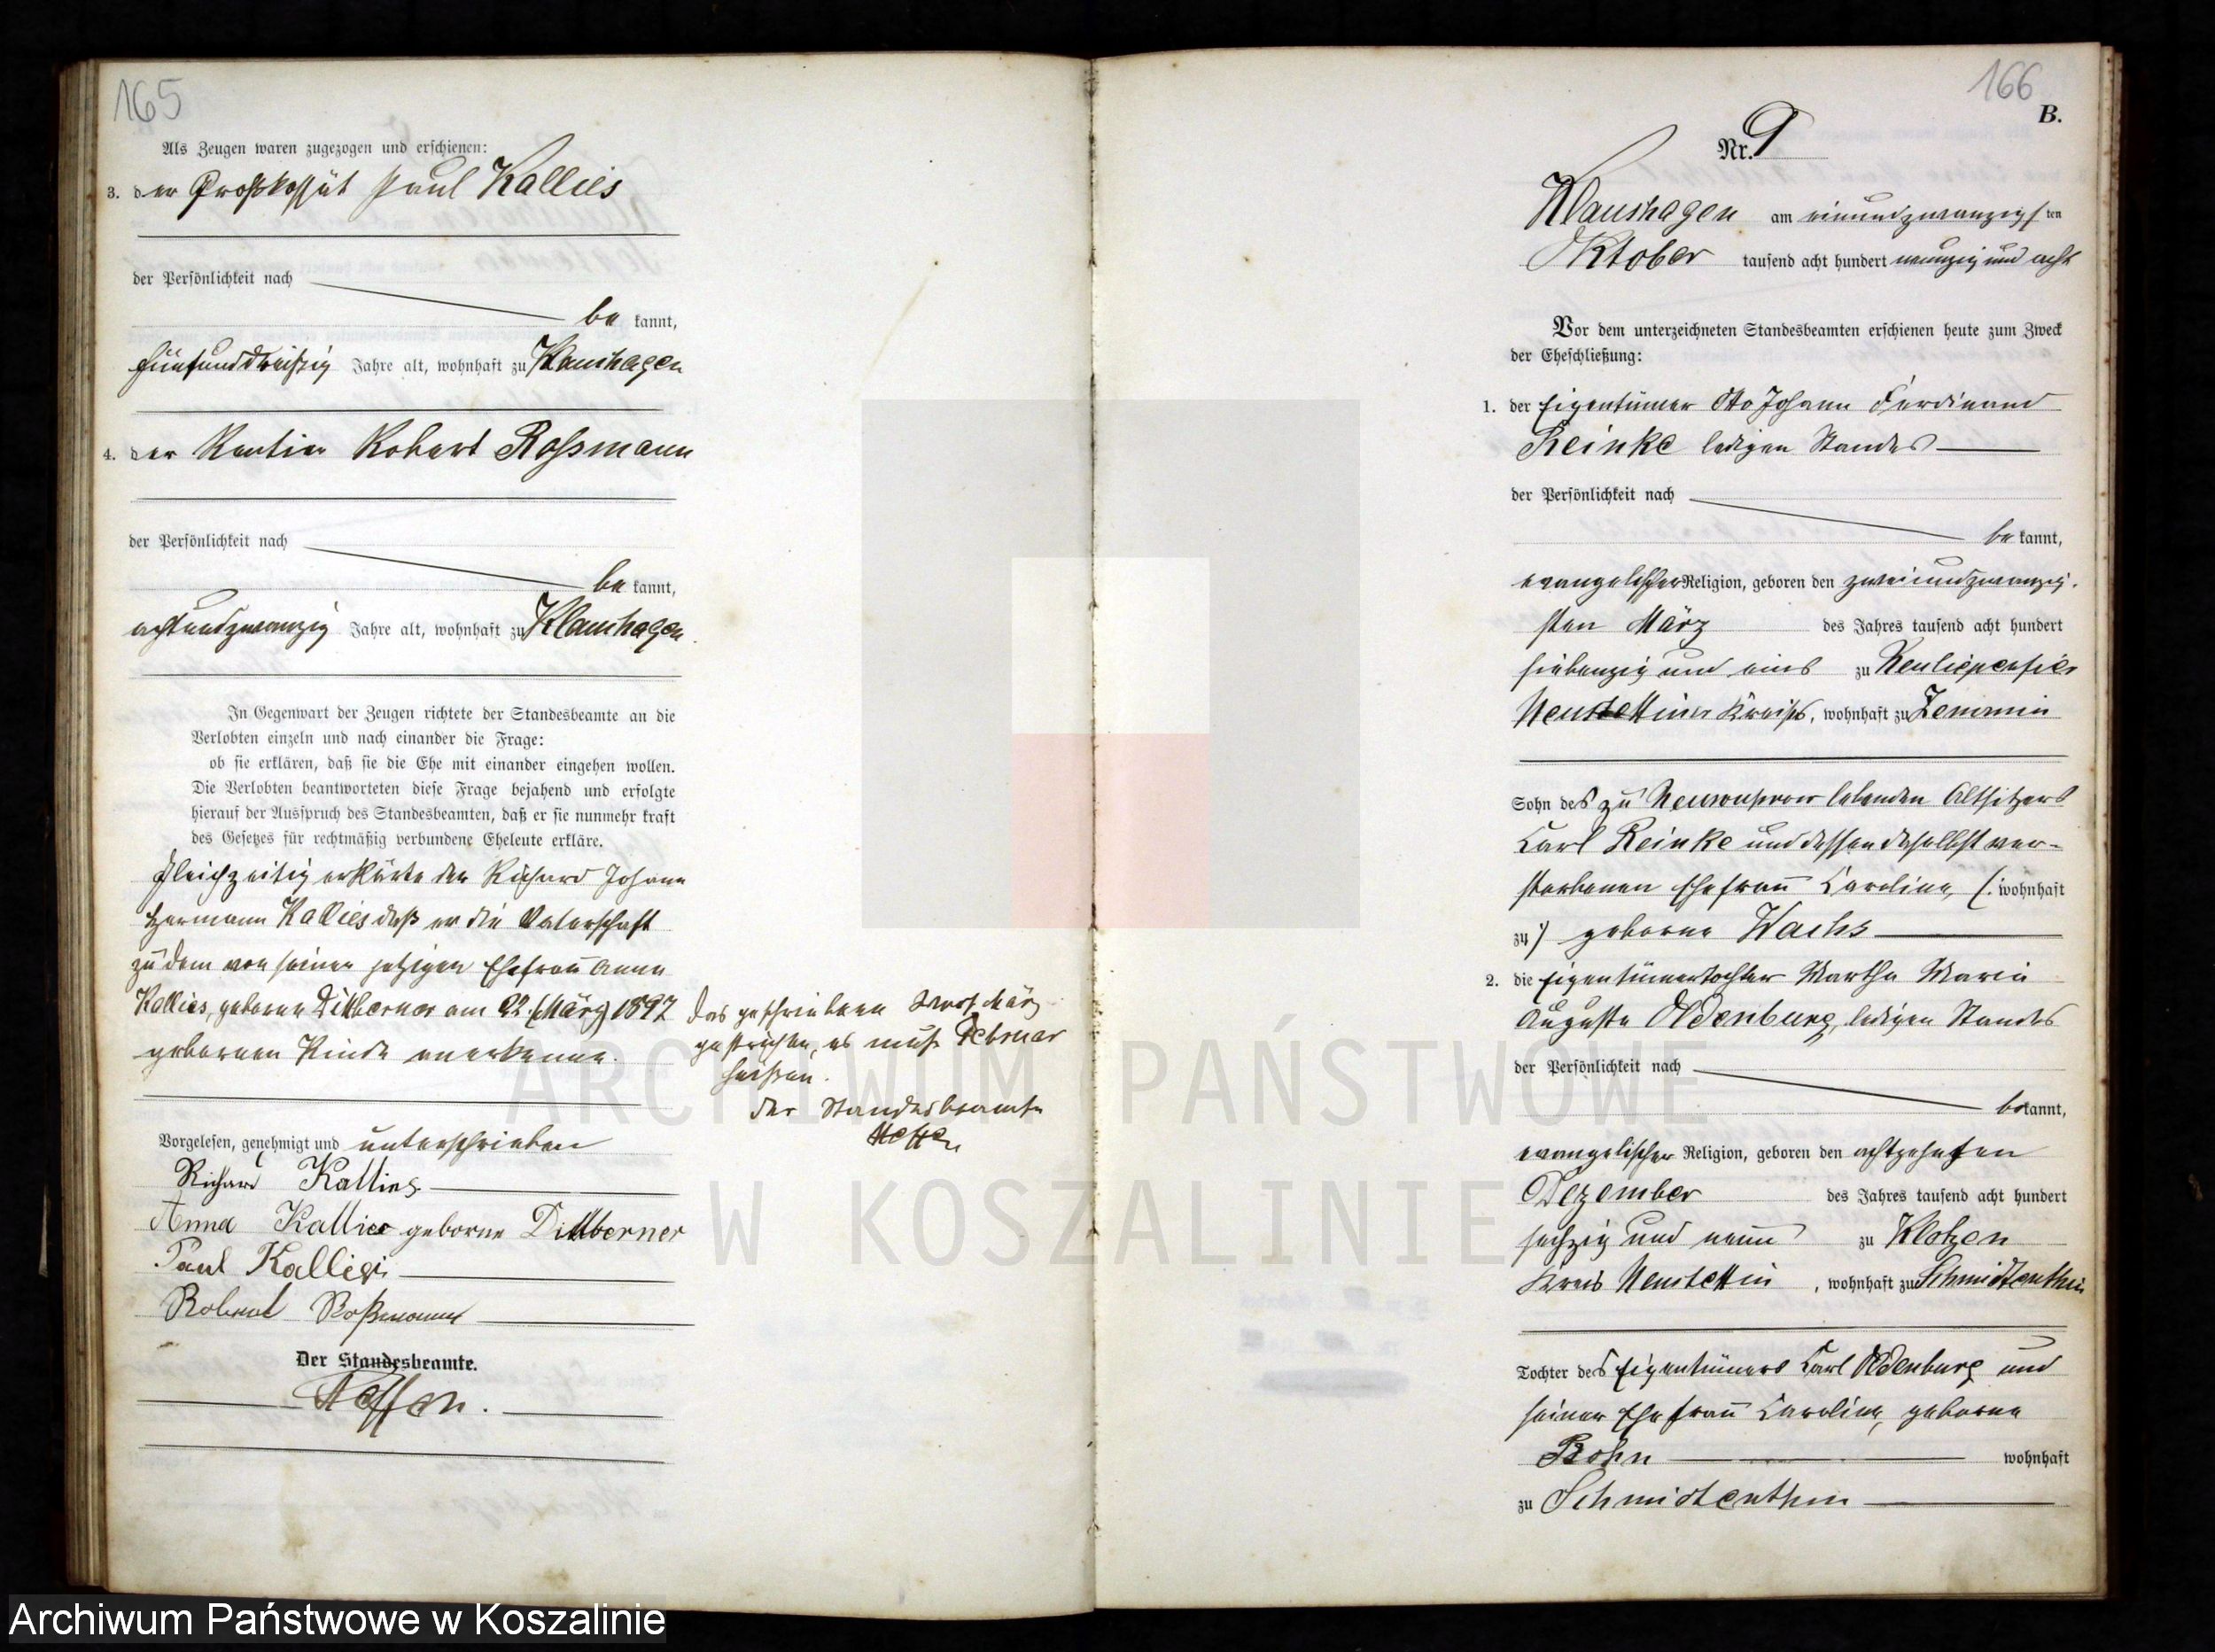 165
Als Zeugen waren zugezogen und erschienen:
3. der Großkossät Paul Kallies
der Persönlichkeit nach
be kannt,
fünfunddreißig Jahre alt, wohnhaft zu Klaushagen
4. der Rentier Robert Rossmann
der Persönlichkeit nach
be kannt,
achtundzwanzig Jahre alt, wohnhaft zu Klaushagen
In Gegenwart der Zeugen richtete der Standesbeamte an die
Verlobten einzeln und nach einander die Frage:
ob sie erklären, daß sie die Ehe mit einander eingehen wollen.
Die Verlobten beantworteten diese Frage bejahend und erfolgte
hierauf der Ausspruch des Standesbeamten, daß er sie nunmehr kraft
des Gesetzes für rechtmäßig verbundene Eheleute erkläre.
Gleichzeitig erklärte der Richard Johann
Hermann Kallies daß er die Vaterschaft
zu dem von seiner jetzigen Ehefrau Anna
Kallies, geborne Dittberner am 22. (März) 1897
gebornen Kinde anerkenne.
das geschriebene Wort März
gestrichen, es muß Februar
heißen.
Der Standesbeamte
Vorgelesen, genehmigt und unterschrieben
Richard Kallies
Anna Kallies geborne Dittberner
Paul Kallies
Robert Roßmann
Der Standesbeamte.
166
B.
Nr. 9
Klaushagen am einundzwanzigsten
Oktober tausend acht hundert neunzig und acht
Vor dem unterzeichneten Standesbeamten erschienen heute zum Zweck
der Eheschließung:
1. der Eigentümer Otto Johann Ferdinand
Reinke ledigen Standes
der Persönlichkeit nach
be kannt,
evangelischer Religion, geboren den zweiundzwanzig-
sten März des Jahres tausend acht hundert
siebenzig und eins zu
Neustettiner Kreises, wohnhaft zu Zemmin
Sohn des zu lebenden Altsitzers
Carl Reinke und dessen daselbst ver-
storbenen Ehefrau Caroline, (: wohnhaft
zu :) geborne Wachs
2. die Eigentümertochter Martha Marie
Auguste Oldenburg, ledigen Standes
der Persönlichkeit nach
bekannt,
evangelischer Religion, geboren den achtzehnten
Dezember des Jahres tausend acht hundert
sechzig und neun zu Klotzen
Kreis Neustettin, wohnhaft zu Schmidtenthin
Tochter des Eigentümers Carl Oldenburg und
seiner Ehefrau Caroline, geborne
wohnhaft
zu Schmidtenthin
ARCHIWUM PAŃSTWOWE
W KOSZALINIE
Archiwum Państwowe w Koszalinie